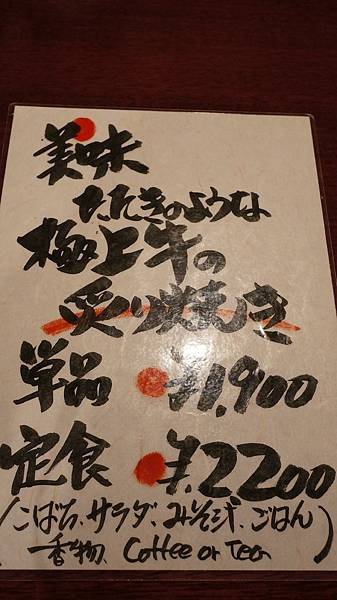 美味
たたきのような
極上牛の
炙り焼き
単品 ¥1,900
定食 ¥2200
(こばち、サラダ、みそ汁、ごはん
香物、Coffee or Tea)